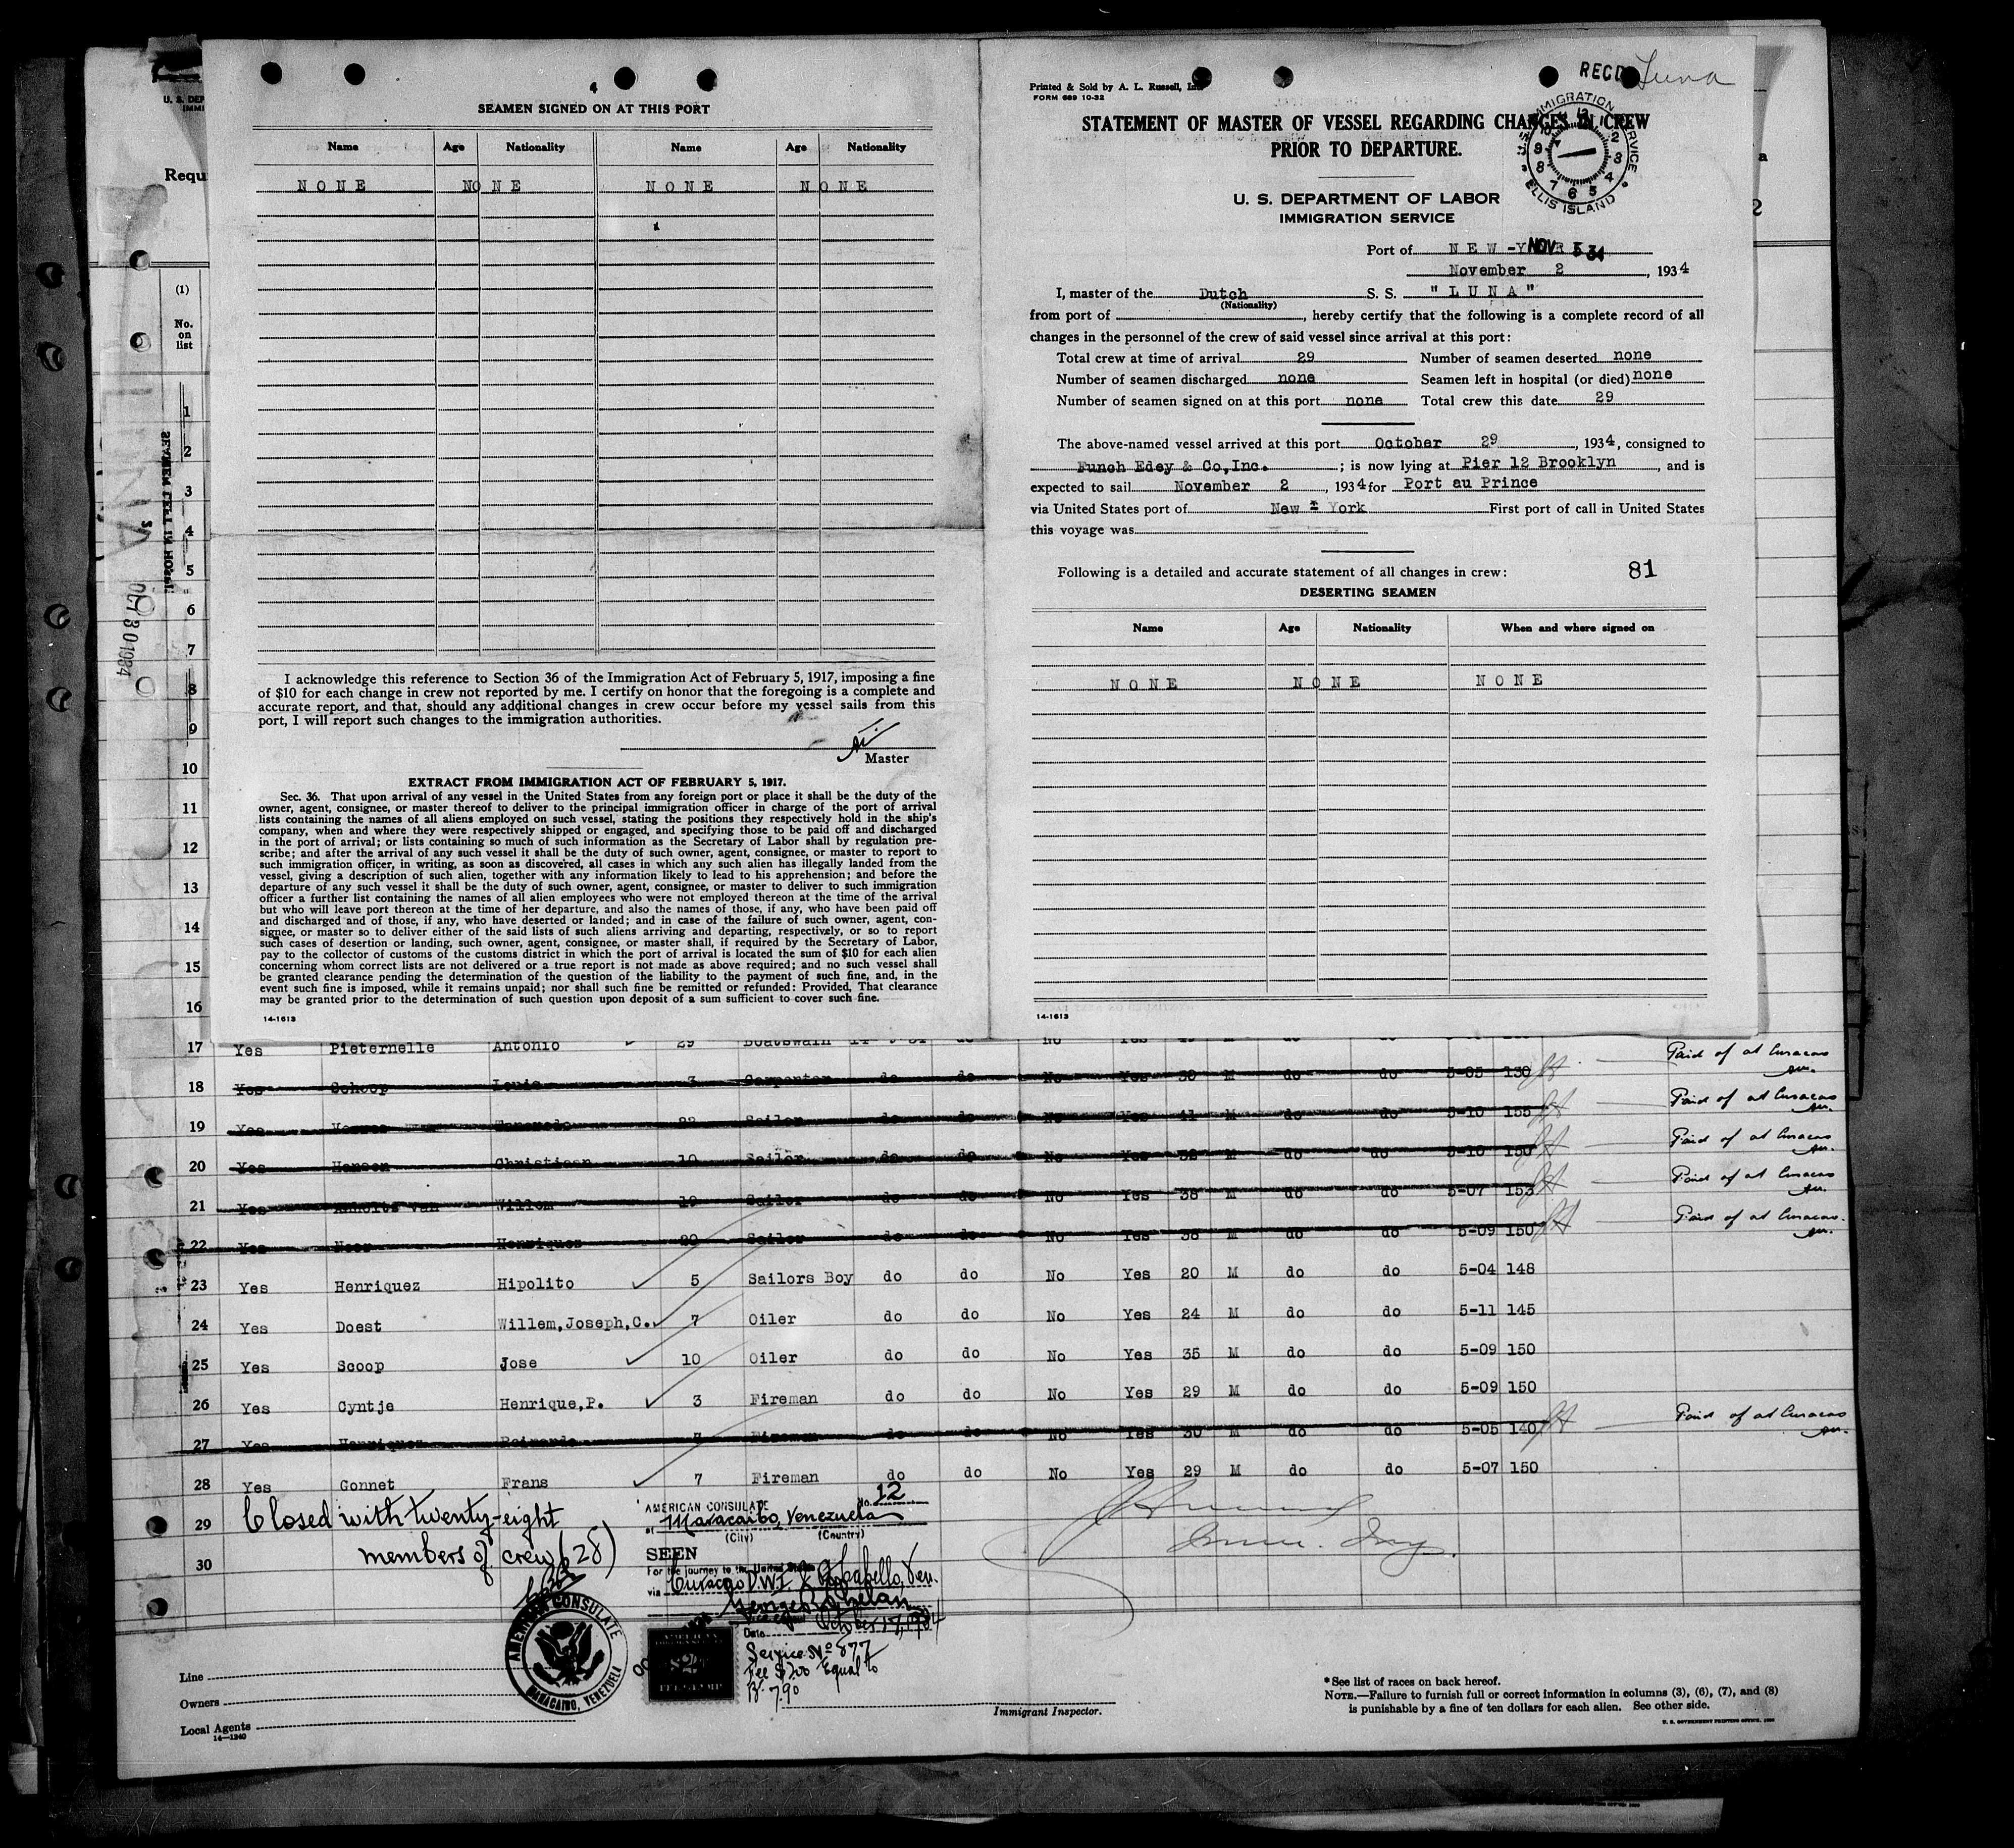 4
SEAMEN SIGNED ON AT THIS PORT
Name Age Nationality Name Age Nationality
NONE NONE NONE NONE
I acknowledge this reference to Section 36 of the Immigration Act of February 5, 1917, imposing a fine
of $10 for each change in crew not reported by me. I certify on honor that the foregoing is a complete and
accurate report, and that, should any additional changes in crew occur before my vessel sails from this
port, I will report such changes to the immigration authorities.
Master
EXTRACT FROM IMMIGRATION ACT OF FEBRUARY 5, 1917.
Sec. 36. That upon arrival of any vessel in the United States from any foreign port or place it shall be the duty of the
owner, agent, consignee, or master thereof to deliver to the principal immigration officer in charge of the port of arrival
lists containing the names of all aliens employed on such vessel, stating the positions they respectively hold in the ship's
company, when and where they were respectively shipped or engaged, and specifying those to be paid off and discharged
in the port of arrival; or lists containing so much of such information as the Secretary of Labor shall by regulation pre-
scribe; and after the arrival of any such vessel it shall be the duty of such owner, agent, consignee, or master to report to
such immigration officer, in writing, as soon as discovered, all cases in which any such alien has illegally landed from the
vessel, giving a description of such alien, together with any information likely to lead to his apprehension; and before the
departure of any such vessel it shall be the duty of such owner, agent, consignee, or master to deliver to such immigration
officer a further list containing the names of all alien employees who were not employed thereon at the time of the arrival
but who will leave port thereon at the time of her departure, and also the names of those, if any, who have been paid off
and discharged and of those, if any, who have deserted or landed; and in case of the failure of such owner, agent, con-
signee, or master so to deliver either of the said lists of such aliens arriving and departing, respectively, or so to report
such cases of desertion or landing, such owner, agent, consignee, or master shall, if required by the Secretary of Labor,
pay to the collector of customs of the customs district in which the port of arrival is located the sum of $10 for each alien
concerning whom correct lists are not delivered or a true report is not made as above required; and no such vessel shall
be granted clearance pending the determination of the question of the liability to the payment of such fine, and, in the
event such fine is imposed, while it remains unpaid; nor shall such fine be remitted or refunded: Provided, That clearance
may be granted prior to the determination of such question upon deposit of a sum sufficient to cover such fine.
14-1613
Printed & Sold by A. L. Russell, Inc.
FORM 689 10-32
RECD Luna
STATEMENT OF MASTER OF VESSEL REGARDING CHANGES IN CREW
PRIOR TO DEPARTURE.
U. S. DEPARTMENT OF LABOR
IMMIGRATION SERVICE
U.S. IMMIGRATION SERVICE
ELLIS ISLAND
NOV 5 34
Port of NEW-YORK
November 2, 1934
I, master of the Dutch S. S. "LUNA"
(Nationality)
from port of , hereby certify that the following is a complete record of all
changes in the personnel of the crew of said vessel since arrival at this port:
Total crew at time of arrival 29 Number of seamen deserted none
Number of seamen discharged none Seamen left in hospital (or died) none
Number of seamen signed on at this port none Total crew this date 29
The above-named vessel arrived at this port October 29, 1934, consigned to
Funch Edey & Co,Inc. ; is now lying at Pier 12 Brooklyn, and is
expected to sail November 2, 1934 for Port au Prince
via United States port of New York First port of call in United States
this voyage was
Following is a detailed and accurate statement of all changes in crew: 81
DESERTING SEAMEN
Name Age Nationality When and where signed on
NONE NONE NONE
14-1613
U. S. DEP
IMMI
Requ
(1)
No.
on
list
OCT 30 1934
1
2
3
4
5
6
7
8
9
10
11
12
13
14
15
16
17 Yes Pieternelle Antonio 29 Boatswain
18 Yes Schoop Louis 3 Carpenter do do No Yes 39 M do do 5-05 130 Paid of at Curacao
19 Yes 22 Sailor do do No Yes 41 M do do 5-10 155 Paid of at Curacao
20 Yes Hansen Christiaan 10 Sailor do do No Yes 32 M do do 5-10 150 Paid of at Curacao
21 Yes van Willem 19 Sailor do do No Yes 38 M do do 5-07 153 Paid of at Curacao
22 Yes Henriquez 20 Sailor do do No Yes 38 M do do 5-09 150 Paid of at Curacao
23 Yes Henriquez Hipolito 5 Sailors Boy do do No Yes 20 M do do 5-04 148
24 Yes Doest Willem,Joseph,C. 7 Oiler do do No Yes 24 M do do 5-11 145
25 Yes Scoop Jose 10 Oiler do do No Yes 35 M do do 5-09 150
26 Yes Cyntje Henrique,P. 3 Fireman do do No Yes 29 M do do 5-09 150
27 Yes Henriquez 7 Fireman do do No Yes 30 M do do 5-05 140 Paid of at Curacao
28 Yes Gonnet Frans 7 Fireman do do No Yes 29 M do do 5-07 150
29 Closed with twenty-eight
30 members of crew (28)
AMERICAN CONSULATE No. 12
at Maracaibo, Venezuela
(City) (Country)
SEEN
For the journey to the United States
via Curacao D.W.I. & Pto. Cabello, Ven.
George Phelan
Date October 17, 1934
Service No 877
Fee $2.00 Equal to
Bs 7.90
AMERICAN CONSULATE
MARACAIBO, VENEZUELA
AMERICAN
$2
FEE STAMP
Line
Owners
Local Agents
14-1240
Immigrant Inspector.
*See list of races on back hereof.
NOTE.—Failure to furnish full or correct information in columns (3), (6), (7), and (8)
is punishable by a fine of ten dollars for each alien. See other side.
U. S. GOVERNMENT PRINTING OFFICE